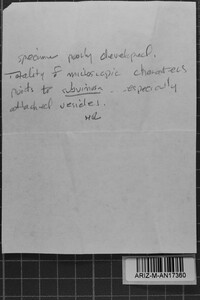 specimen poorly developed.
Totality of microscopic characters
points to , especially
attached vesicles.
ARIZ-M-AN17360